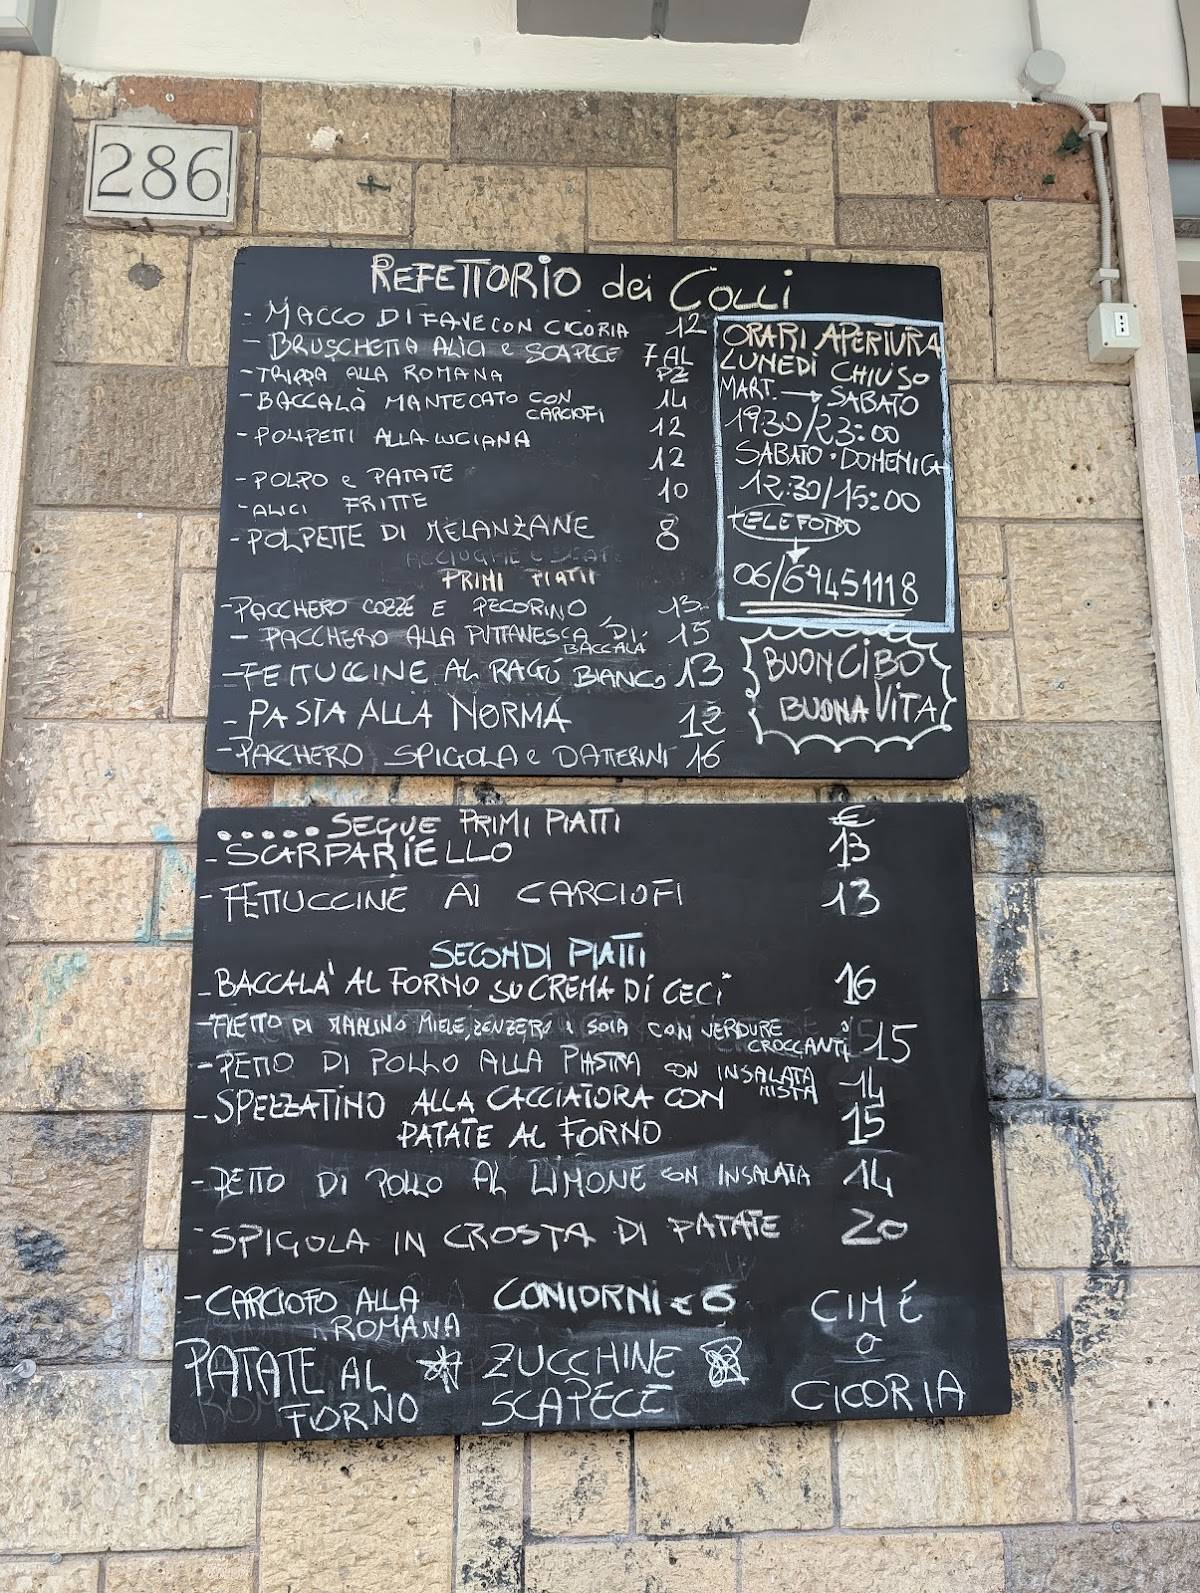 286
REFETTORIO dei COLLI
- MACCO DI FAVE CON CICORIA 12
- BRUSCHETTA ALICI e SCAPECE 7 AL PZ
- TRIPPA ALLA ROMANA
- BACCALÀ MANTECATO CON CARCIOFI 14
- POLIPETTI ALLA LUCIANA 12
- POLPO e PATATE 12
- ALICI FRITTE 10
- POLPETTE DI MELANZANE 8
PRIMI PIATTI
- PACCHERO COZZE E PECORINO 13
- PACCHERO ALLA PUTTANESCA DI BACCALÀ 15
- FETTUCCINE AL RAGÙ BIANCO 13
- PASTA ALLA NORMA 12
- PACCHERO SPIGOLA e DATTERINI 16
ORARI APERTURA
LUNEDÌ CHIUSO
MART. → SABATO
19:30/23:00
SABATO · DOMENICA
12:30/15:00
TELEFONO
06/69451118
BUON CIBO
BUONA VITA
..... SEGUE PRIMI PIATTI €
- SCARPARIELLO 13
- FETTUCCINE AI CARCIOFI 13
SECONDI PIATTI
- BACCALA' AL FORNO SU CREMA DI CECI 16
- FILETTO DI MAIALINO MIELE, ZENZERO e SOIA CON VERDURE CROCCANTI 15
- PETTO DI POLLO ALLA PIASTRA CON INSALATA MISTA 14
- SPEZZATINO ALLA CACCIATORA CON
PATATE AL FORNO 15
- PETTO DI POLLO AL LIMONE CON INSALATA 14
- SPIGOLA IN CROSTA DI PATATE 20
CONTORNI € 6
- CARCIOFO ALLA
ROMANA
PATATE AL
FORNO
ZUCCHINE
SCAPECE
CIME
o
CICORIA